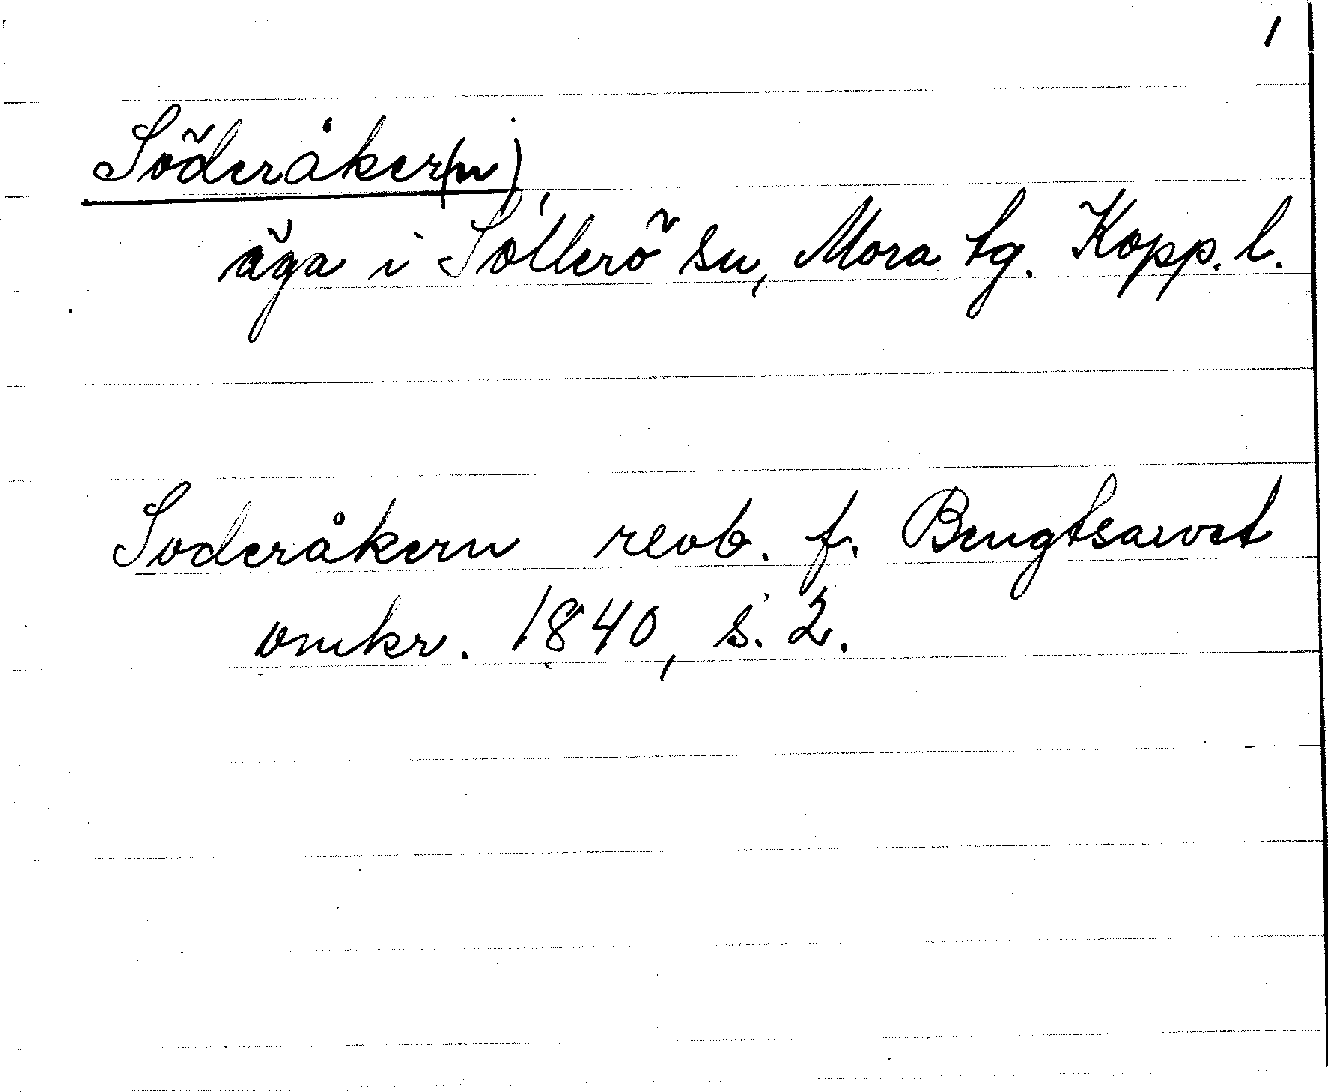 1
Söderåker(n),
äga i Sollerö sn, Mora tg. Kopp. l.
Soderåkern revb. f. Bengtsarvet
omkr. 1840, s. 2.